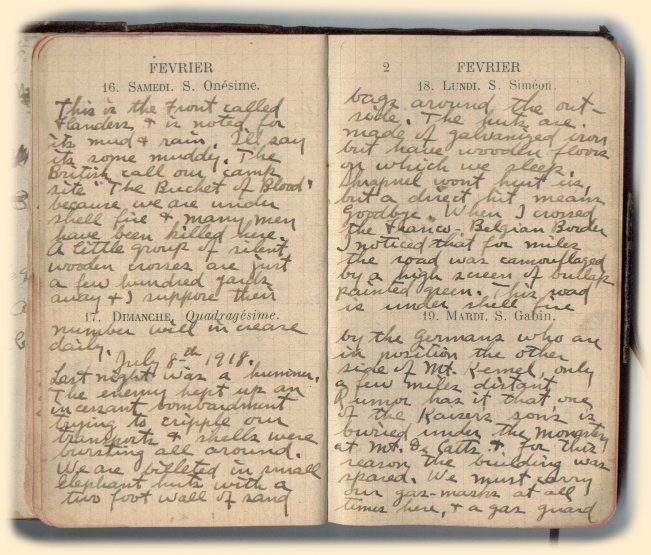 FEVRIER
16. SAMEDI. S. Onésime.
This is the front called
Flanders & is noted for
its mud & rain. I'll say
its some muddy. The
British call our camp
site "The Bucket of Blood"
because we are under
shell fire & many men
have been killed here.
A little group of silent
wooden crosses are just
a few hundred yards
away & I suppose their
17. DIMANCHE, Quadragésime.
number will increase
daily.
July 8th 1918.
Last night was a hummer.
The enemy kept up an
incessant bombardment
trying to cripple our
transports & shells were
bursting all around.
We are billeted in small
elephant huts with a
two foot wall of sand
2 FEVRIER
18. LUNDI. S. Siméon.
bags around the out-
side. The huts are
made of galvanized iron
but have wooden floors
on which we sleep.
Shrapnel wont hurt us,
but a direct hit means
Goodbye. When I crossed
the Franco-Belgian Border
I noticed that for miles
the road was camouflaged
by a high screen of burlap
painted green. This road
is under shell fire
19. MARDI. S. Gabin.
by the Germans who are
in position the other
side of Mt. Kemel, only
a few miles distant.
Rumor has it that one
of the Kaisers son's is
buried under the monastery
at Mt. De Catts & for this
reason the building was
spared. We must carry
our gas-masks at all
times here, & a gas guard